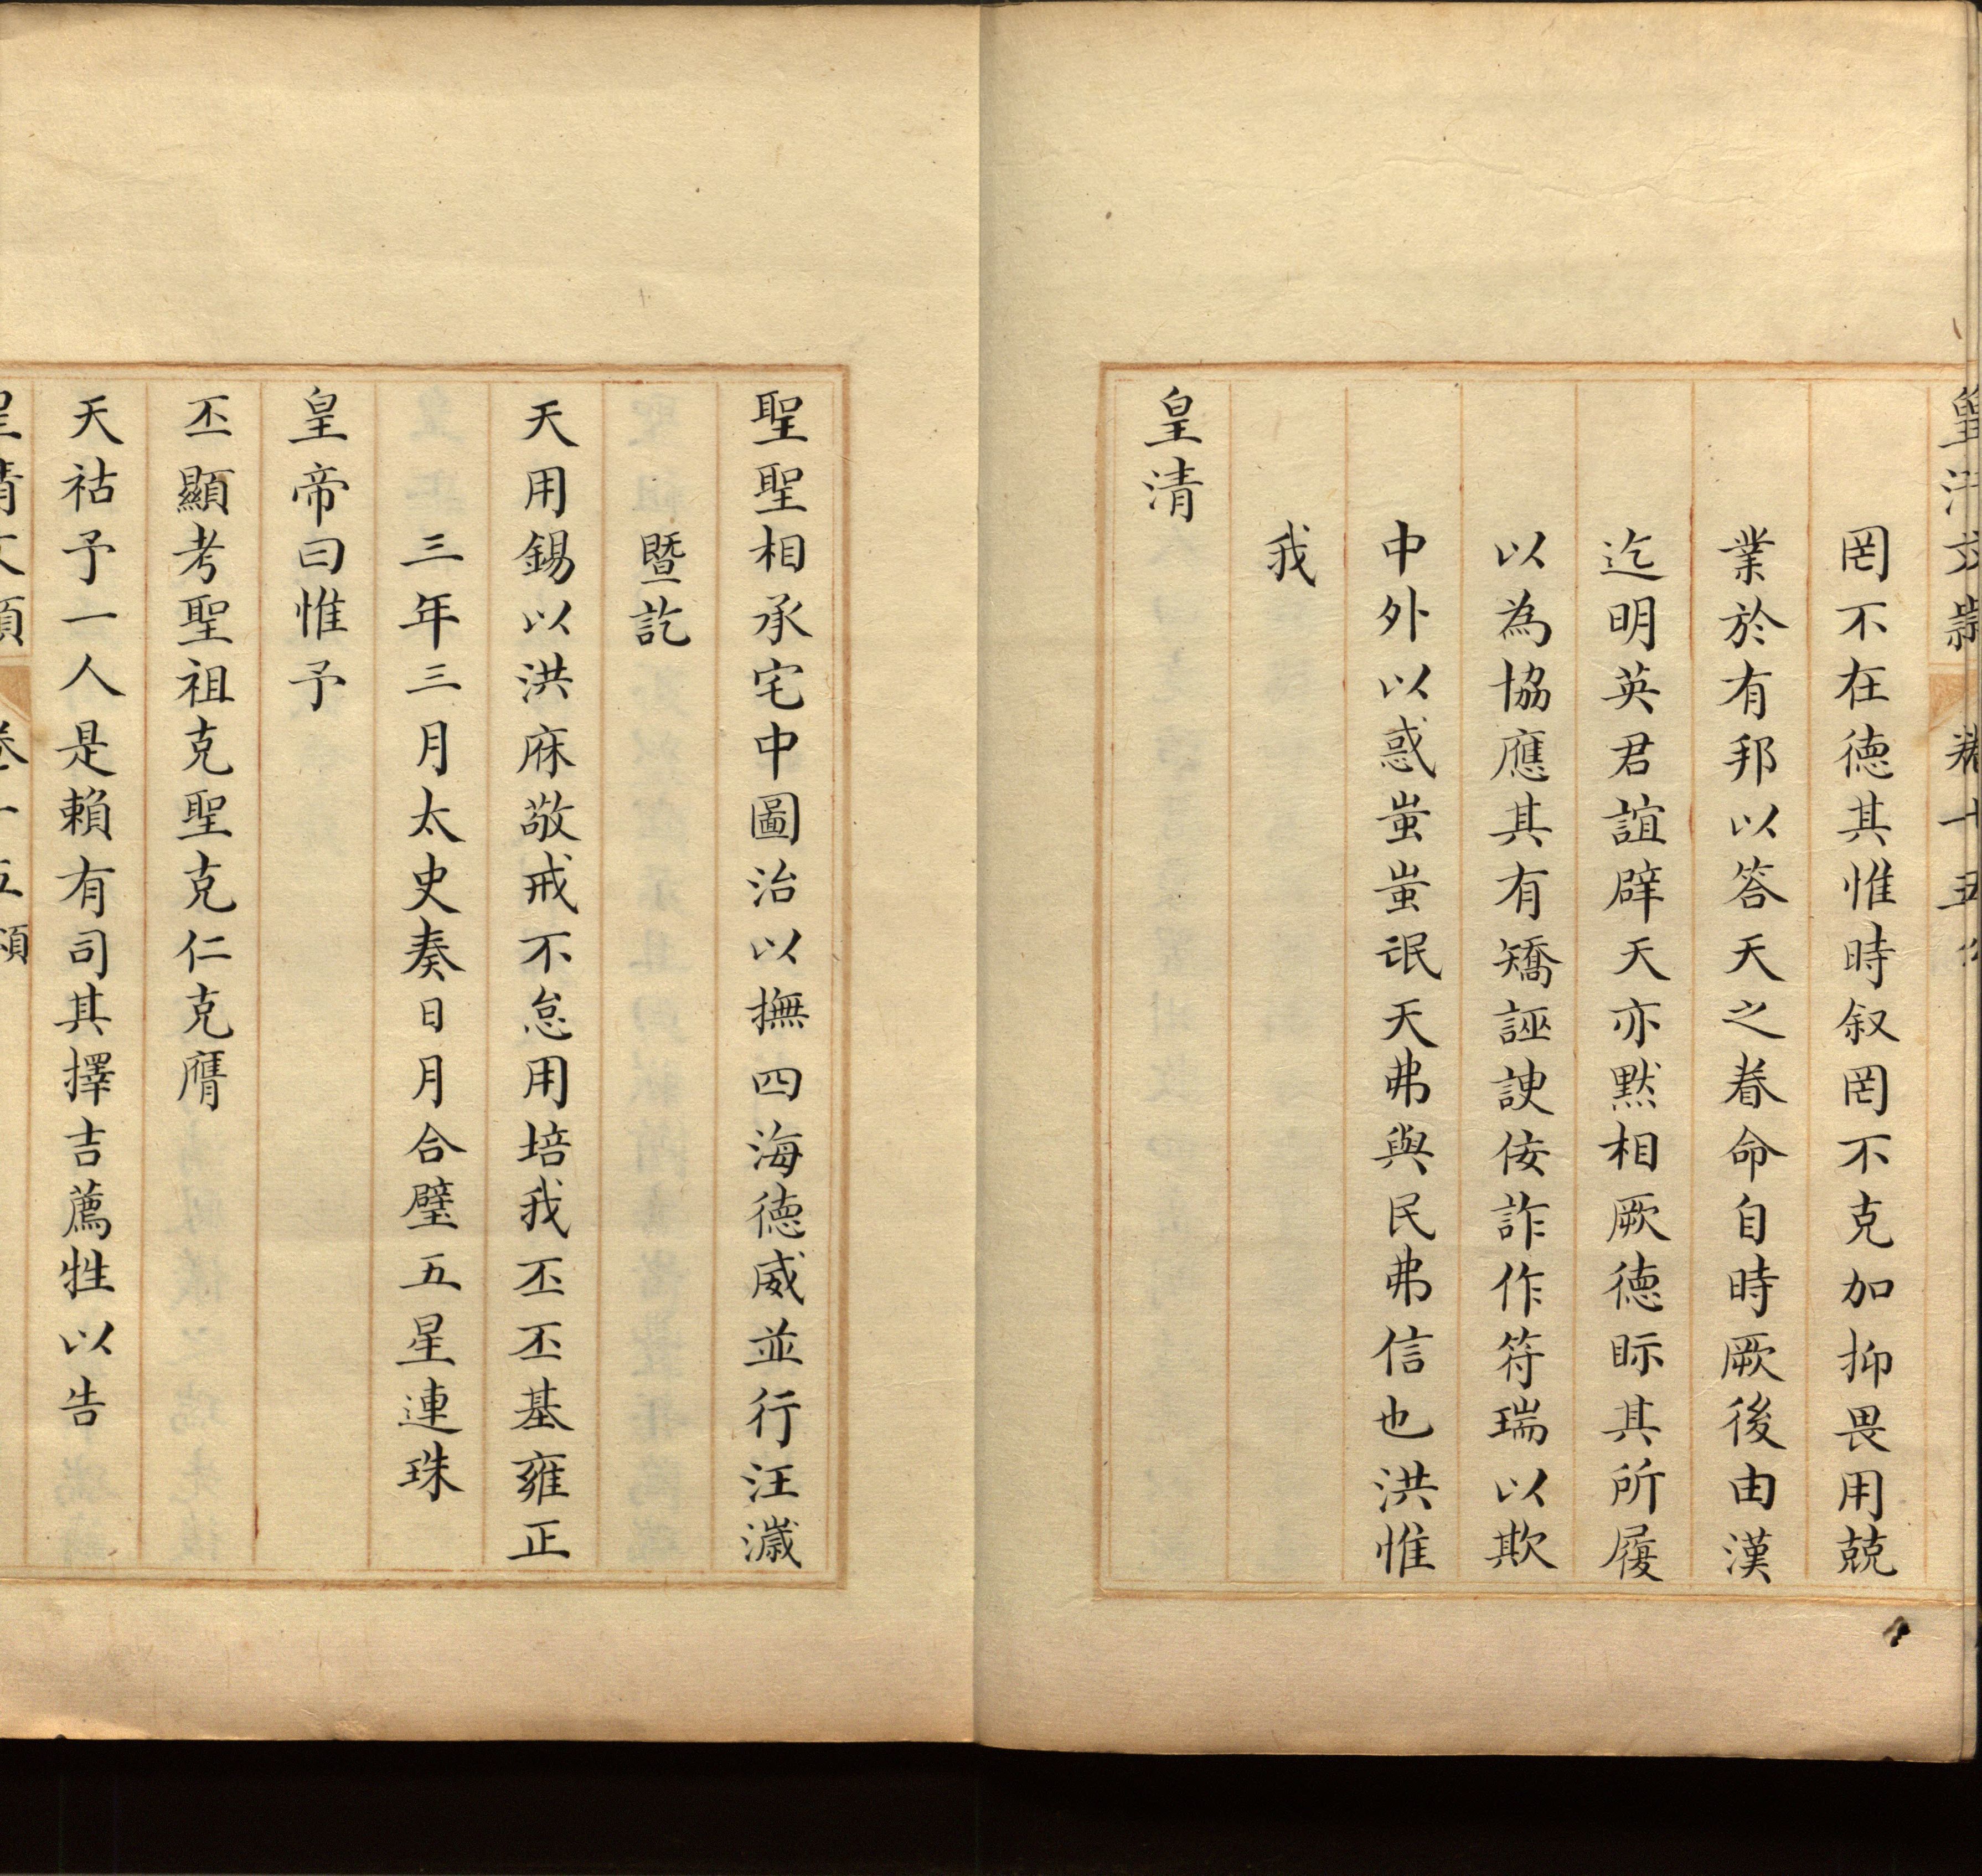 皇清文穎 卷十五
罔不在德其惟時叙罔不克加抑畏用兢
業於有邦以答天之眷命自時厥後由漢
迄明英君誼辟天亦黙相厥德眎其所履
以為協應其有矯誣諛佞詐作符瑞以欺
中外以惑蚩蚩氓天弗與民弗信也洪惟
我
皇清
聖聖相承宅中圖治以撫四海德威並行汪濊
暨訖
天用錫以洪庥敬戒不怠用培我丕丕基雍正
三年三月太史奏日月合璧五星連珠
皇帝曰惟予
丕顯考聖祖克聖克仁克膺
天祜予一人是賴有司其擇吉薦牲以告
皇清文穎 卷十五 頌